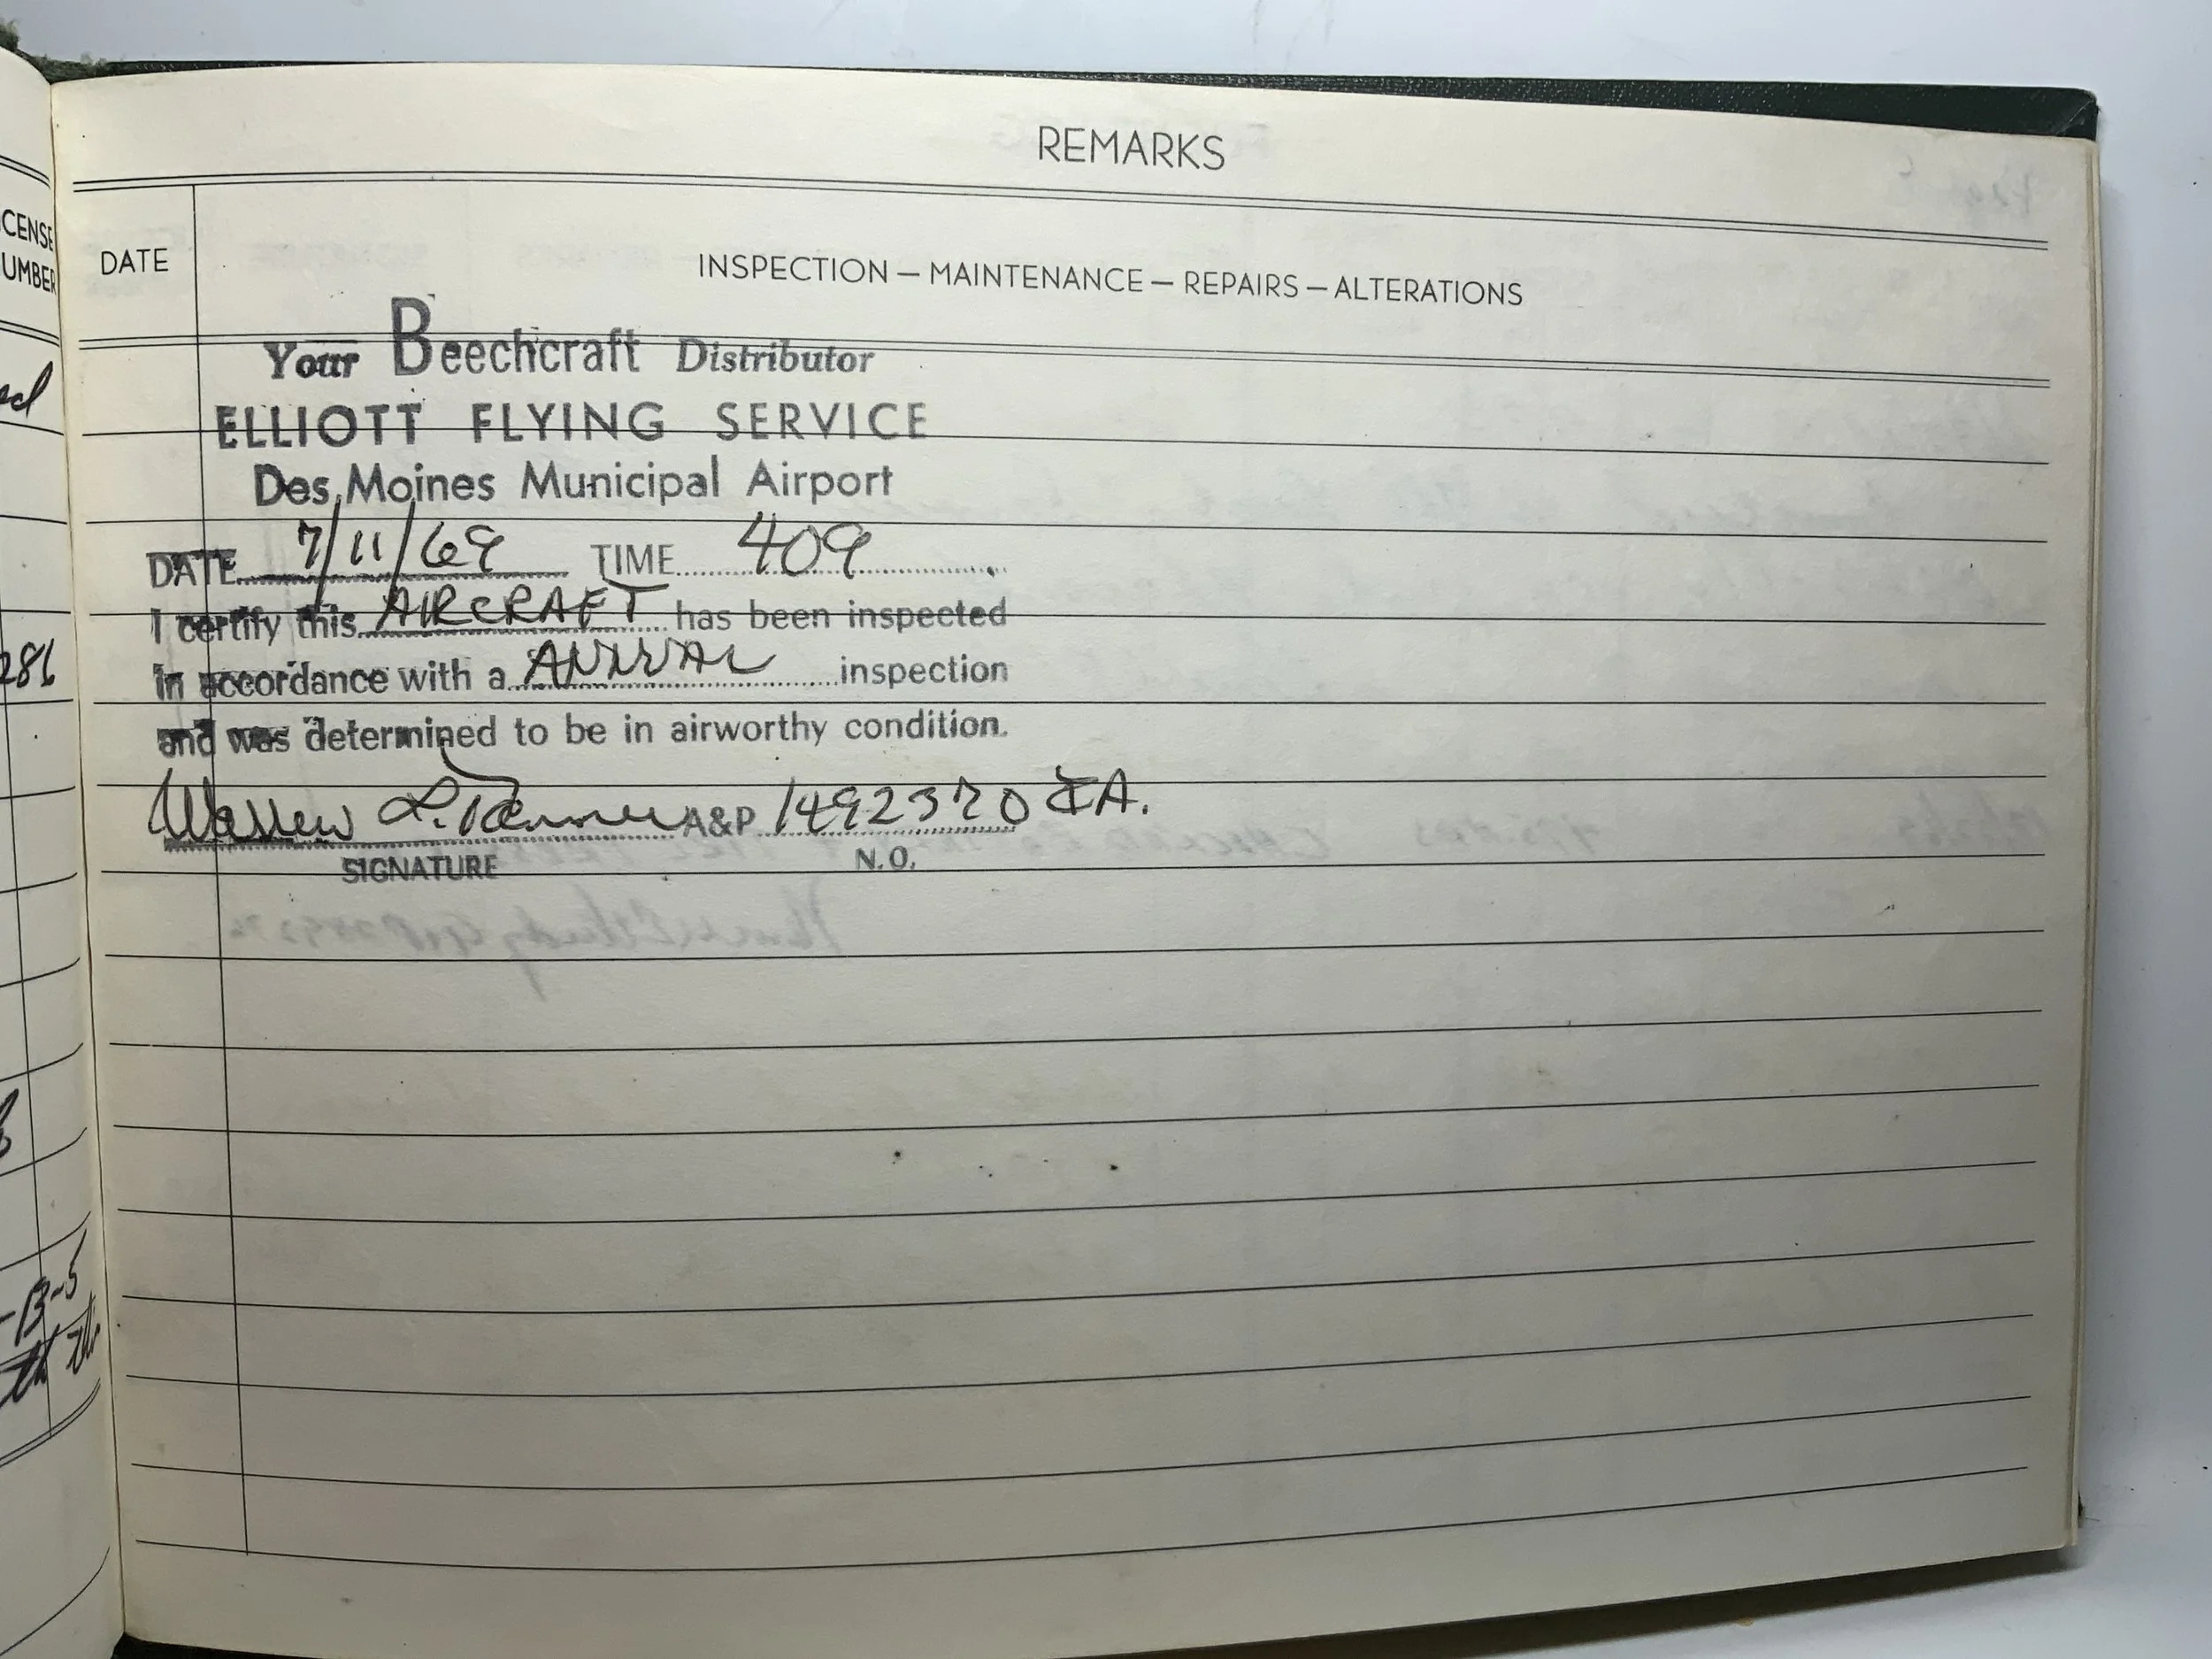 CENSE
UMBER
286
-B-5
REMARKS
DATE
INSPECTION — MAINTENANCE — REPAIRS — ALTERATIONS
Your Beechcraft Distributor
ELLIOTT FLYING SERVICE
Des Moines Municipal Airport
DATE 7/11/69 TIME 409
I certify this AIRCRAFT has been inspected
in accordance with a ANNUAL inspection
and was determined to be in airworthy condition.
Warren L. A&P 1492370 IA.
SIGNATURE N.O.